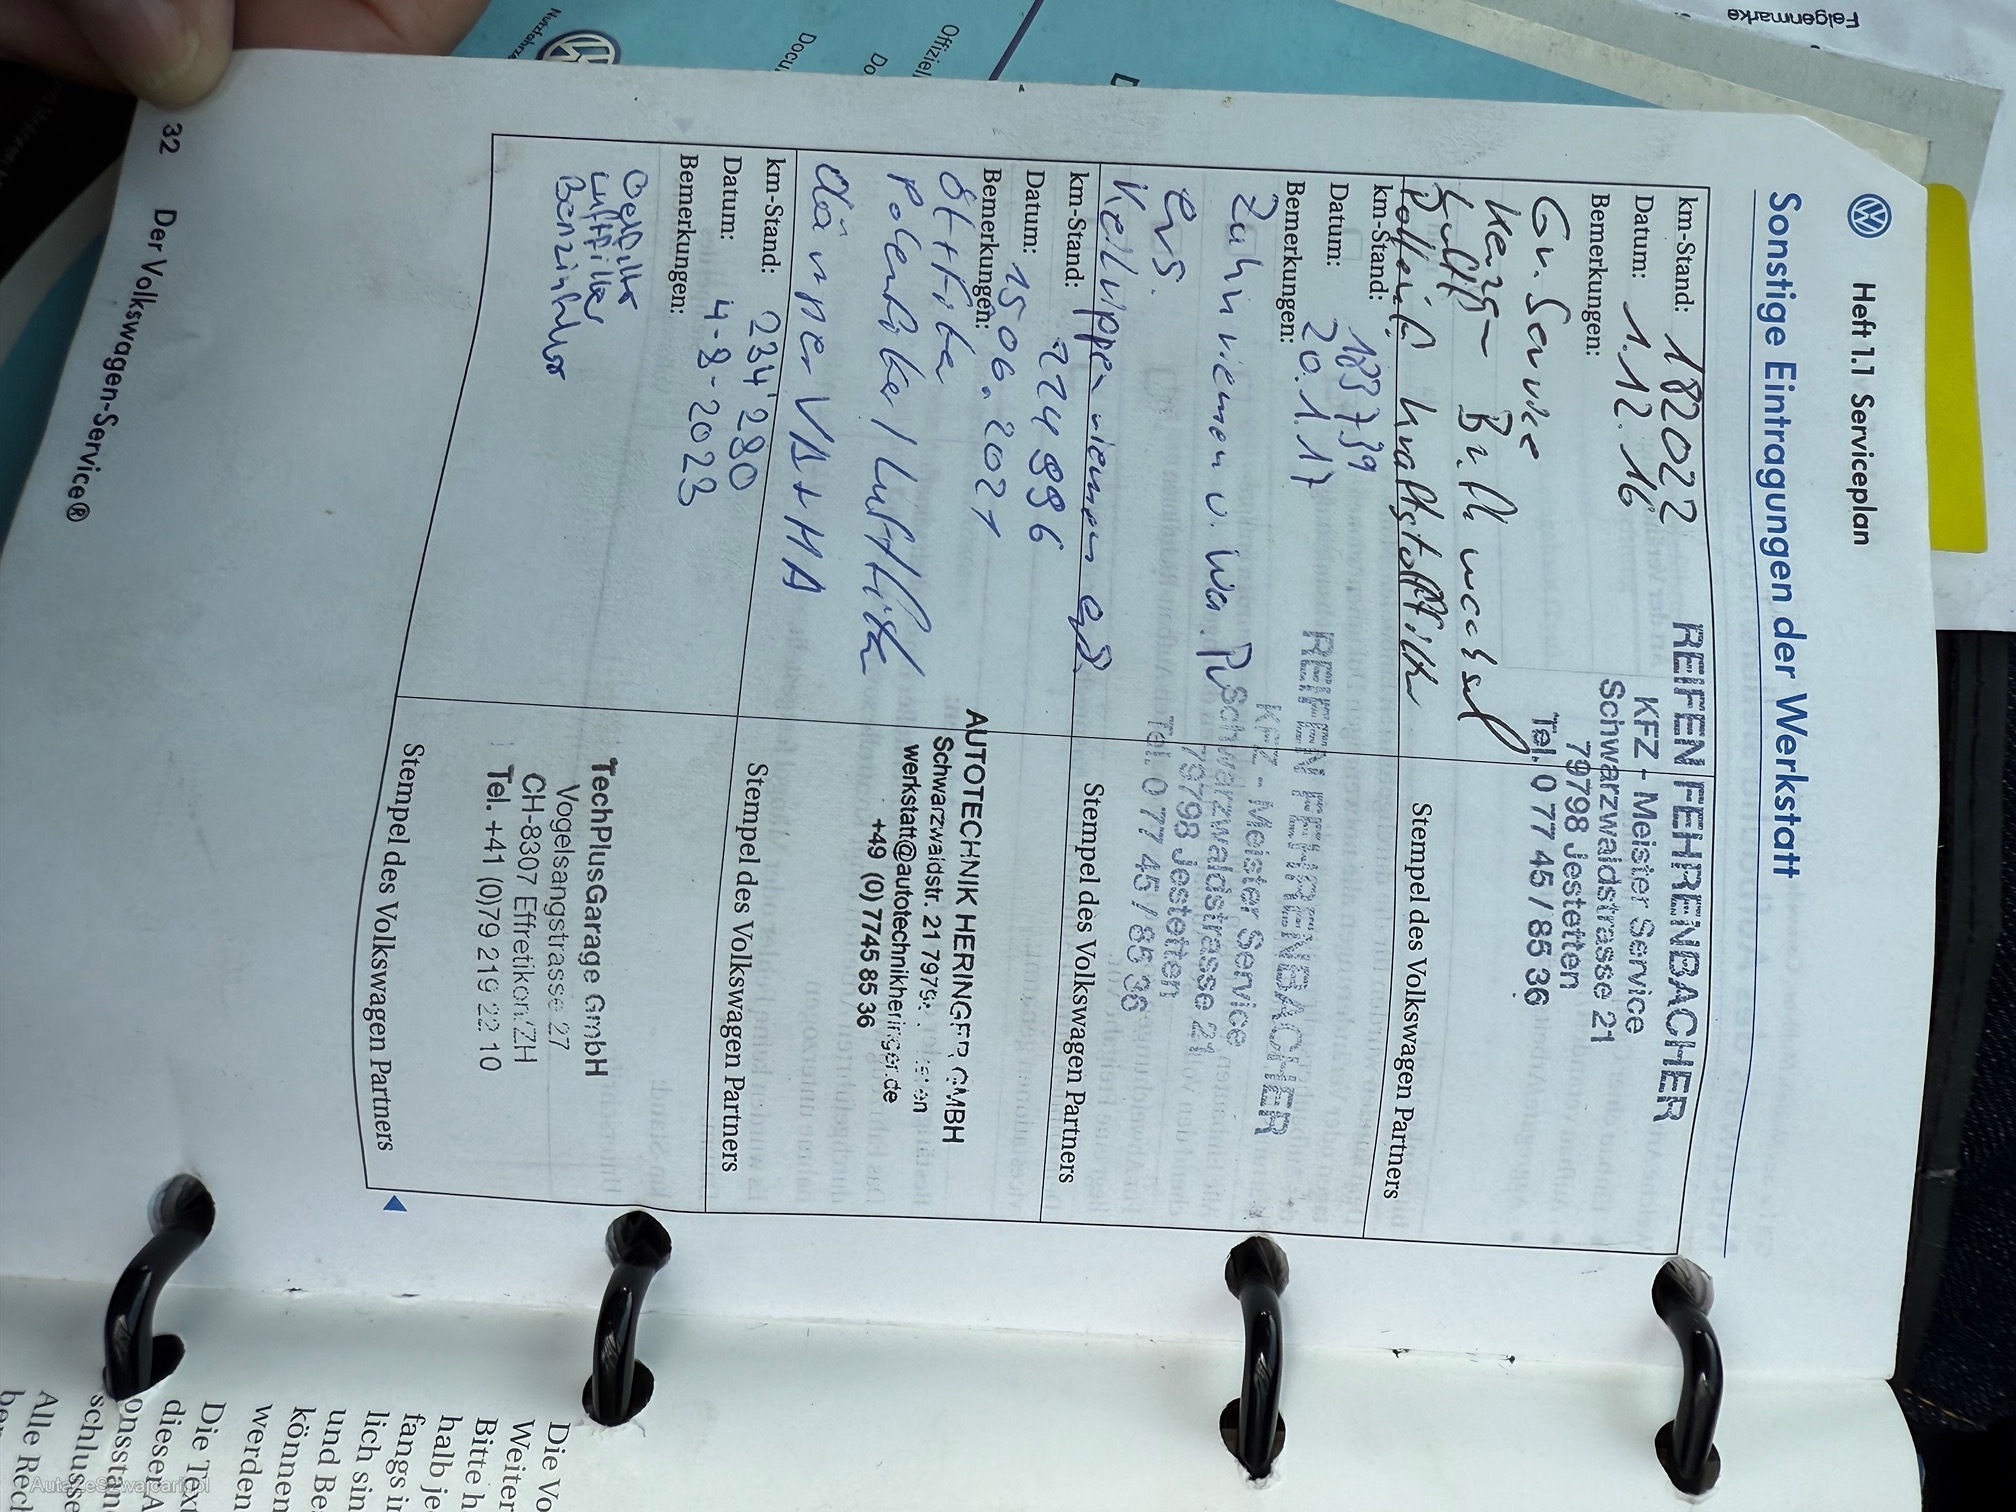 Heft 1.1 Serviceplan
Sonstige Eintragungen der Werkstatt
km-Stand: 182022
Datum: 1.12.16
Bemerkungen:
Gr. Service
Kerzen Br. Fl. wechsel
Luftf.
Pollenf. Kraftstofffilter
REIFEN FEHRENBACHER
KFZ - Meister Service
Schwarzwaldstrasse 21
79798 Jestetten
Tel. 0 77 45 / 85 36
Stempel des Volkswagen Partners
km-Stand: 183739
Datum: 20.1.17
Bemerkungen:
Zahnriemen u. Wa. Pu
ers.
Keilrippenriemen ers.
REIFEN FEHRENBACHER
KFZ - Meister Service
Schwarzwaldstrasse 21
79798 Jestetten
Tel. 0 77 45 / 85 36
Stempel des Volkswagen Partners
km-Stand: 224996
Datum: 15.06.2021
Bemerkungen:
Luftfilter
AUTOTECHNIK HERINGER GMBH
Schwarzwaldstr. 21 7979
werkstatt@autotechnikheringer.de
+49 (0) 7745 85 36
Stempel des Volkswagen Partners
Dämpfer VA + HA
km-Stand: 234'280
Datum: 4-8-2023
Bemerkungen:
Luftfilter
TechPlusGarage GmbH
Vogelsangstrasse 27
CH-8307 Effretikon/ZH
Tel. +41 (0)79 219 22 10
Stempel des Volkswagen Partners
32 Der Volkswagen-Service®
Felgenmarke
Offiziel
Do
Docu
Nutzfahrze
Die Vo
Weiter
Bitte h
halb je
fangs i
lich sin
und Be
können
werden
Die Text
dieser A
onsstan
schlusse
Alle Rech
AutazeSzwajcarii.pl